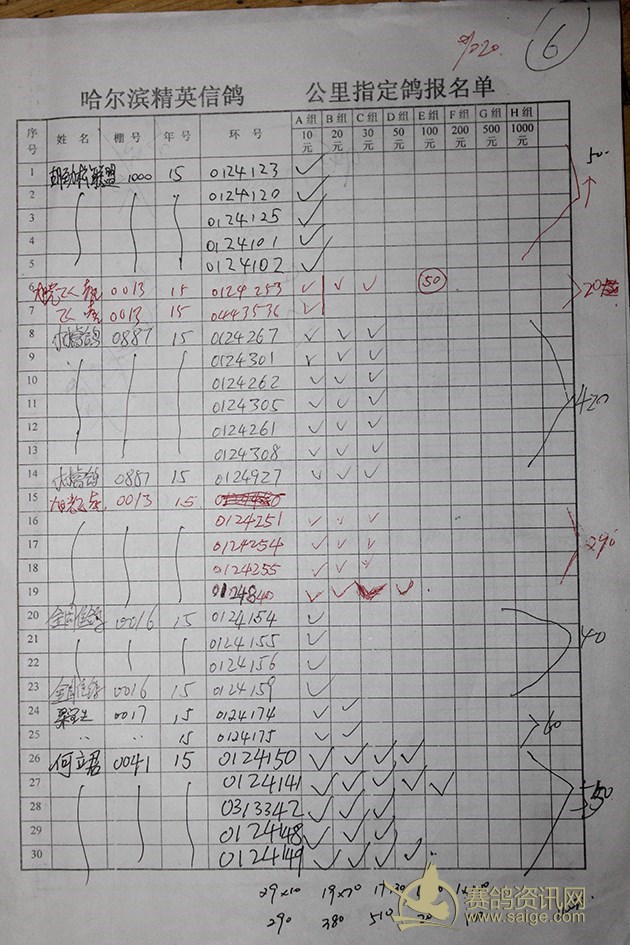 6
哈尔滨精英信鸽 公里指定鸽报名单
序号 姓名 棚号 年号 环号 A组10元 B组20元 C组30元 D组50元 E组100元 F组200元 G组500元 H组1000元
1 联盟 1000 15 0124123 ✓
2 0124120 ✓
3 0124125 ✓
4 0124101 ✓
5 0124102 ✓
50
6 0013 15 0124253 ✓ ✓ ✓ 50
7 0013 15 0443536 ✓
8 0887 15 0124267 ✓ ✓ ✓
9 0124301 ✓ ✓ ✓
10 0124262 ✓ ✓ ✓
11 0124305 ✓ ✓ ✓
12 0124261 ✓ ✓ ✓
13 0124308 ✓ ✓ ✓
420
14 0887 15 0124927 ✓ ✓ ✓
15 0013 15
16 0124251 ✓ ✓ ✓
17 0124254 ✓ ✓ ✓
18 0124255 ✓ ✓ ✓
19 0124840 ✓ ✓ ✓ ✓
290
20 0016 15 0124154 ✓
21 0124155 ✓
22 0124156 ✓
23 0016 15 0124159 ✓
40
24 0017 15 0124174 ✓ ✓
25 15 0124175 ✓ ✓
60
26 何立君 0041 15 0124150 ✓ ✓ ✓ ✓
27 0124141 ✓ ✓ ✓ ✓ ✓
28 0313342 ✓ ✓ ✓
29 0124148 ✓ ✓ ✓
30 0124149 ✓ ✓ ✓ ✓
29×10 19×20 17×30
290 380 510
赛鸽资讯网
www.saige.com